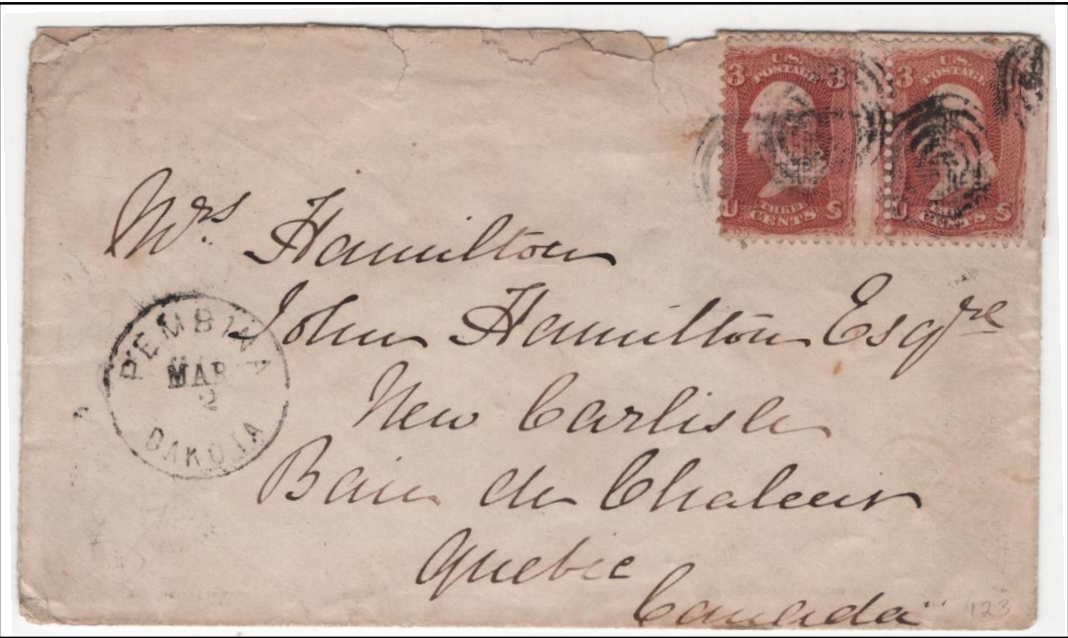 3 U.S. 3
POSTAGE
THREE
U CENTS S
3 U.S.
POSTAGE
U CENTS S
Mrs. Hamilton
John Hamilton Esqre
New Carlisle
Baie de Chaleur
Quebec
Canada
PEMBINA
MAR
2
DAKOTA
123